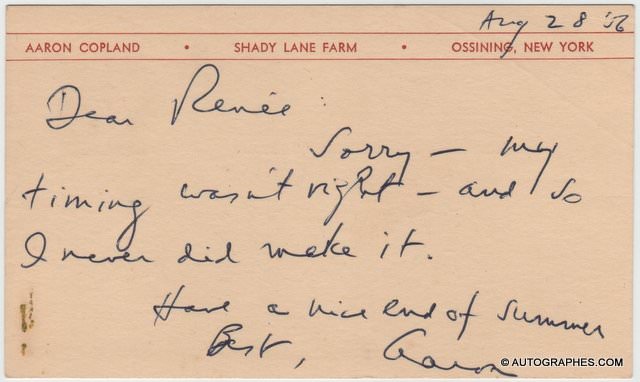 Aug 28 '56
AARON COPLAND • SHADY LANE FARM • OSSINING, NEW YORK
Dear Renée:
Sorry – my
timing wasn't right – and so
I never did make it.
Have a nice end of summer
Best,
Aaron
© AUTOGRAPHES.COM